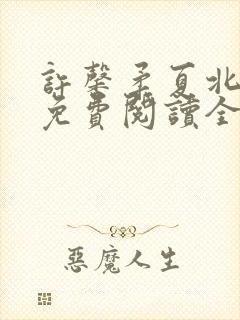 許馨矛夏北
免費閱讀全
惡魔人生